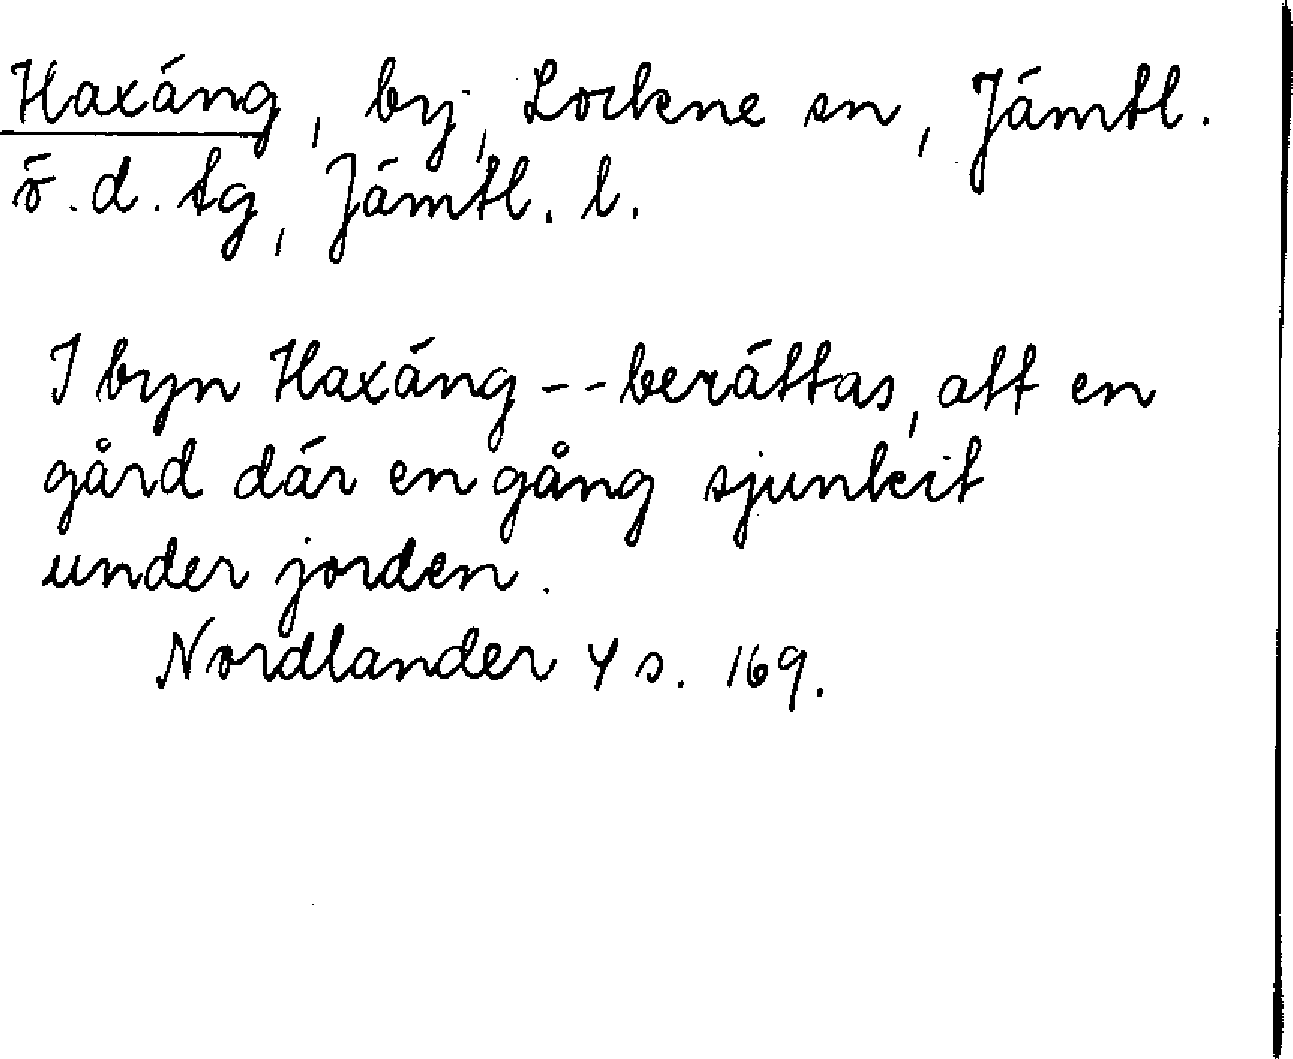 Haxäng, by, Lockne sn, Jämtl.
ö.d. tg, Jämtl. l.
I byn Haxäng -- berättas, att en
gård där en gång sjunkit
under jorden.
Nordlander 4 s. 169.